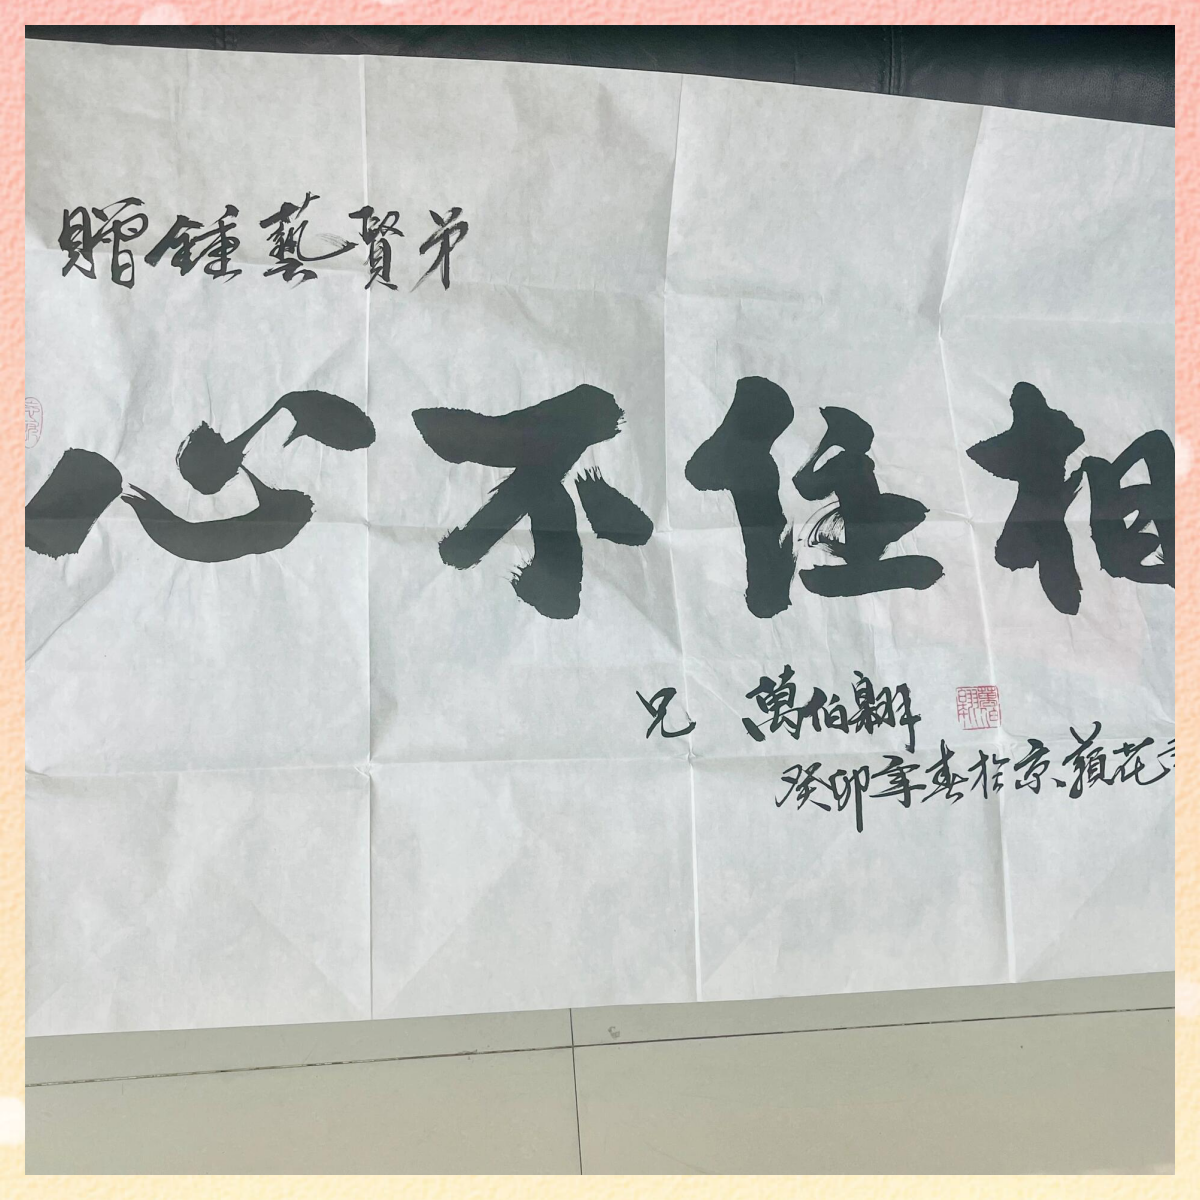 贈鍾藝賢弟
心不住相
兄 萬伯翱
癸卯年春於京蘋花